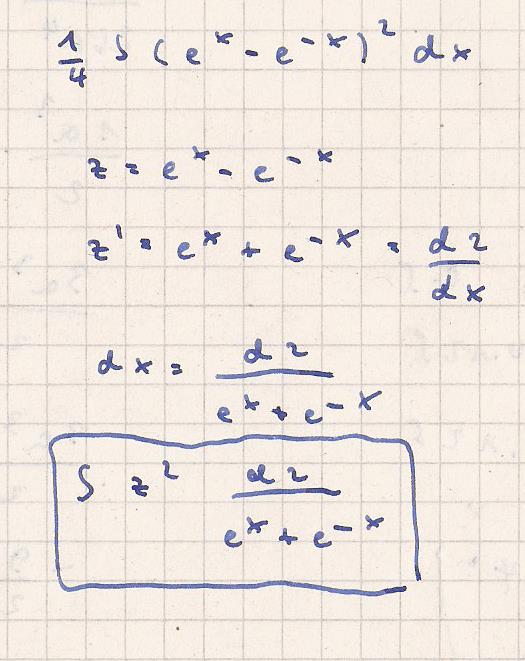 1/4 ∫ (e^x - e^-x)^2 dx
z = e^x - e^-x
z' = e^x + e^-x = dz/dx
dx = dz/(e^x + e^-x)
∫ z^2 dz/(e^x + e^-x)